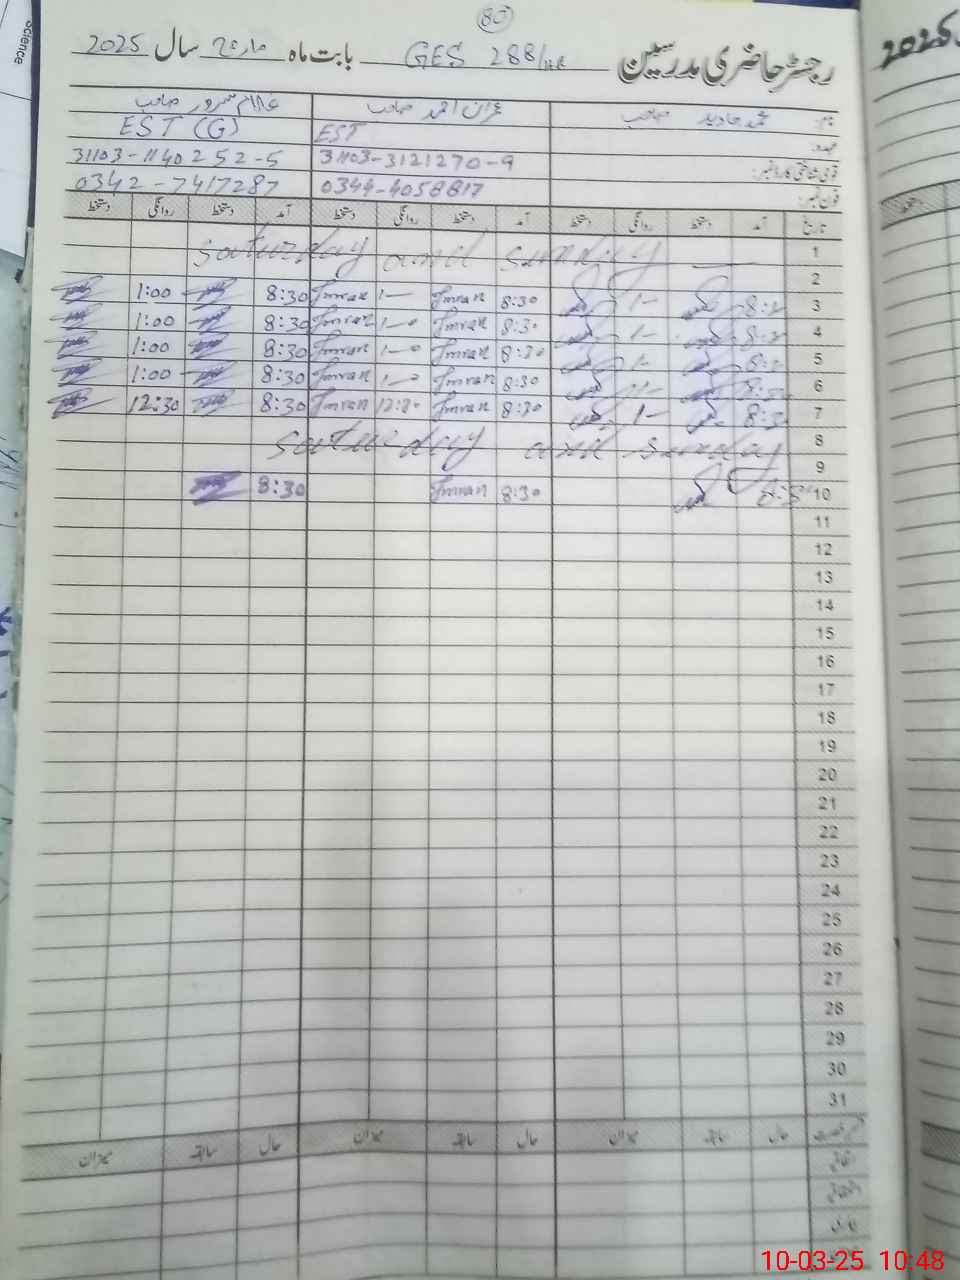 80
رجسٹر حاضری مدرسین GES 288/HR بابت ماہ مارچ سال 2025
نام: محمد جاوید صاحب عمران احمد صاحب غلام سرور صاحب
عہدہ: EST EST (G)
قومی شناختی کارڈ نمبر: 31103-3121270-9 31103-1140252-5
فون نمبر: 0344-4058817 0342-7417287
تاریخ آمد دستخط روانگی دستخط آمد دستخط روانگی دستخط آمد دستخط روانگی دستخط
1 Saturday and Sunday
2
3 8:3 1- 8:30 Imran 1- Imran 8:30 1:00
4 8:3 1- 8:30 Imran 1-0 Imran 8:30 1:00
5 8:3 1- 8:30 Imran 1-0 Imran 8:30 1:00
6 8:3 1- 8:30 Imran 1-0 Imran 8:30 1:00
7 8:3 1- 8:30 Imran 12:30 Imran 8:30 12:30
8 Saturday and Sunday
9
10 8:3 8:30 Imran 8:30
11
12
13
14
15
16
17
18
19
20
21
22
23
24
25
26
27
28
29
30
31
حال سابقہ میزان حال سابقہ میزان حال سابقہ میزان
اتفاقیہ
استحقاقیہ
بیماری
science
2025
10-03-25 10:48